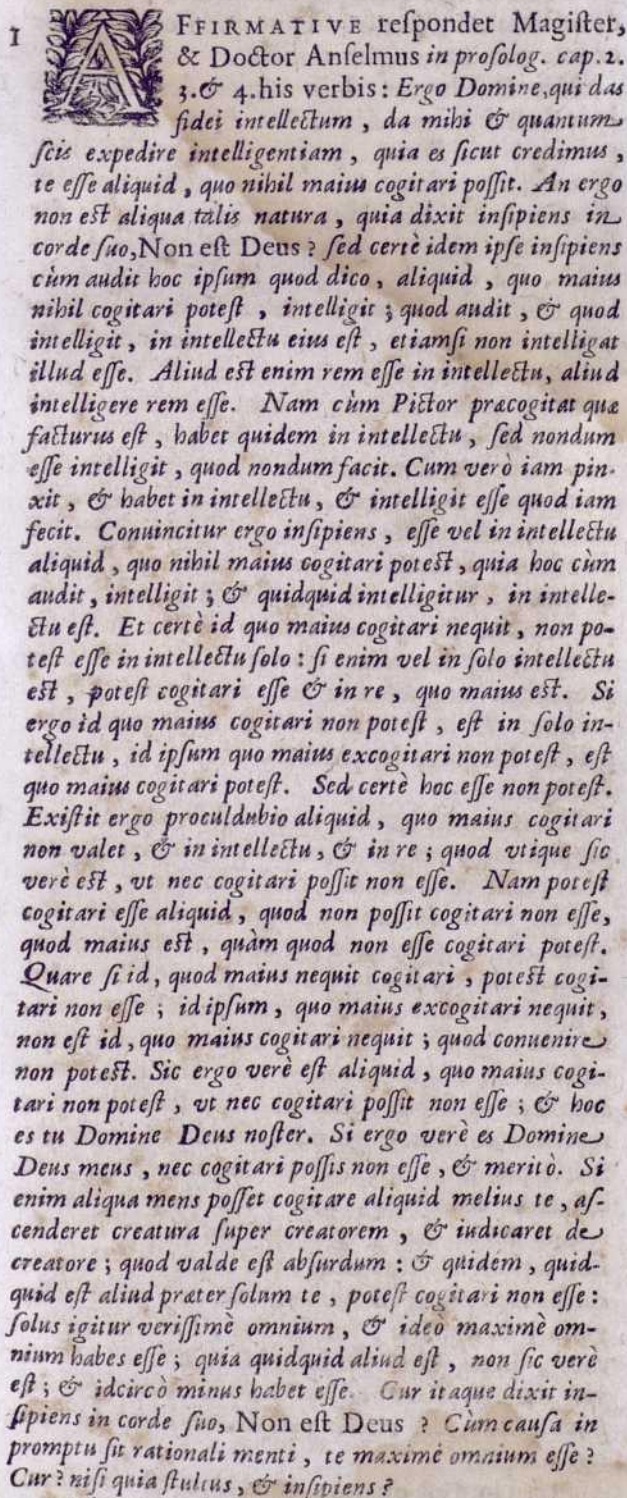 1 AFFIRMATIVE reſpondet Magiſter,
& Doctor Anſelmus in proſolog. cap. 2.
3. & 4. his verbis: Ergo Domine, qui das
fidei intellectum, da mihi & quantum
ſcis expedire intelligentiam, quia es ſicut credimus,
te eſſe aliquid, quo nihil maius cogitari poſſit. An ergo
non eſt aliqua talis natura, quia dixit inſipiens in
corde ſuo, Non eſt Deus? ſed certè idem ipſe inſipiens
cùm audit hoc ipſum quod dico, aliquid, quo maius
nihil cogitari poteſt, intelligit; quod audit, & quod
intelligit, in intellectu eius eſt, etiamſi non intelligat
illud eſſe. Aliud eſt enim rem eſſe in intellectu, aliud
intelligere rem eſſe. Nam cùm Pictor præcogitat quæ
facturus eſt, habet quidem in intellectu, ſed nondum
eſſe intelligit, quod nondum facit. Cum verò iam pin-
xit, & habet in intellectu, & intelligit eſſe quod iam
fecit. Conuincitur ergo inſipiens, eſſe vel in intellectu
aliquid, quo nihil maius cogitari poteſt, quia hoc cùm
audit, intelligit; & quidquid intelligitur, in intelle-
ctu eſt. Et certè id quo maius cogitari nequit, non po-
teſt eſſe in intellectu ſolo: ſi enim vel in ſolo intellectu
eſt, poteſt cogitari eſſe & in re, quo maius eſt. Si
ergo id quo maius cogitari non poteſt, eſt in ſolo in-
tellectu, id ipſum quo maius excogitari non poteſt, eſt
quo maius cogitari poteſt. Sed certè hoc eſſe non poteſt.
Exiſtit ergo proculdubio aliquid, quo maius cogitari
non valet, & in intellectu, & in re; quod vtique ſic
verè eſt, vt nec cogitari poſſit non eſſe. Nam poteſt
cogitari eſſe aliquid, quod non poſſit cogitari non eſſe,
quod maius eſt, quàm quod non eſſe cogitari poteſt.
Quare ſi id, quod maius nequit cogitari, poteſt cogi-
tari non eſſe; id ipſum, quo maius excogitari nequit,
non eſt id, quo maius cogitari nequit; quod conuenire
non poteſt. Sic ergo verè eſt aliquid, quo maius cogi-
tari non poteſt, vt nec cogitari poſſit non eſſe; & hoc
es tu Domine Deus noſter. Si ergo verè es Domine
Deus meus, nec cogitari poſſis non eſſe, & meritò. Si
enim aliqua mens poſſet cogitare aliquid melius te, aſ-
cenderet creatura ſuper creatorem, & iudicaret de
creatore; quod valde eſt abſurdum: & quidem, quid-
quid eſt aliud præter ſolum te, poteſt cogitari non eſſe:
ſolus igitur veriſſimè omnium, & ideò maximè om-
nium habes eſſe; quia quidquid aliud eſt, non ſic verè
eſt; & idcircò minus habet eſſe. Cur itaque dixit in-
ſipiens in corde ſuo, Non eſt Deus? Cùm cauſa in
promptu ſit rationali menti, te maximè omnium eſſe?
Cur? niſi quia ſtultus, & inſipiens?